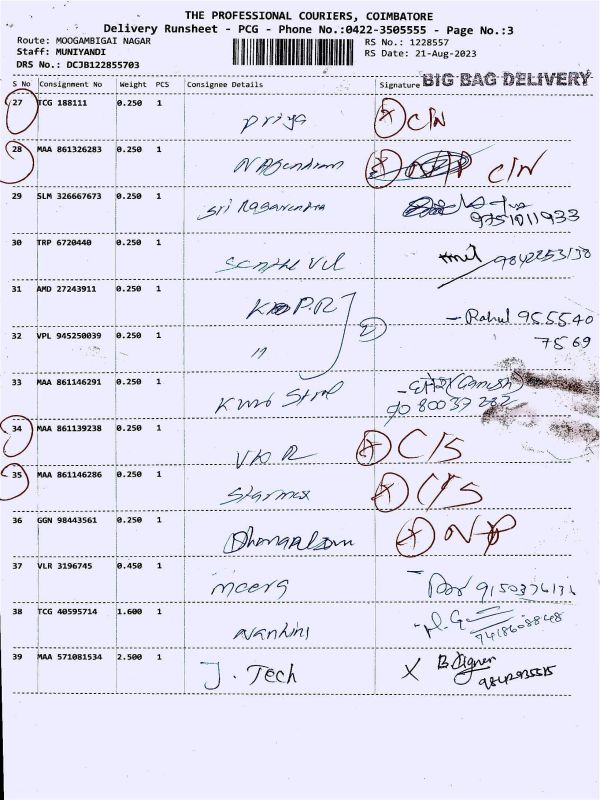 THE PROFESSIONAL COURIERS, COIMBATORE
Delivery Runsheet - PCG - Phone No.:0422-3505555 - Page No.:3
Route: MOOGAMBIGAI NAGAR
RS No.: 1228557
Staff: MUNIYANDI
RS Date: 21-Aug-2023
DRS No.: DCJB122855703
BIG BAG DELIVERY
S No Consignment No Weight PCS Consignee Details Signature
27 TCG 188111 0.250 1 Priya X C/N
28 MAA 861326283 0.250 1 X C/N
29 SLM 326667673 0.250 1 Sri
30 TRP 6720440 0.250 1 9842253138
31 AMD 27243911 0.250 1 K.P.R
- Rahul 95.55.40
32 VPL 945250039 0.250 1 " 2
75 69
33 MAA 861146291 0.250 1
34 MAA 861139238 0.250 1 X C/S
35 MAA 861146286 0.250 1 Starmex X C/S
36 GGN 98443561 0.250 1 X NP
37 VLR 3196745 0.450 1 meera
38 TCG 40595714 1.600 1 Nandhini
39 MAA 571081534 2.500 1 J. Tech X